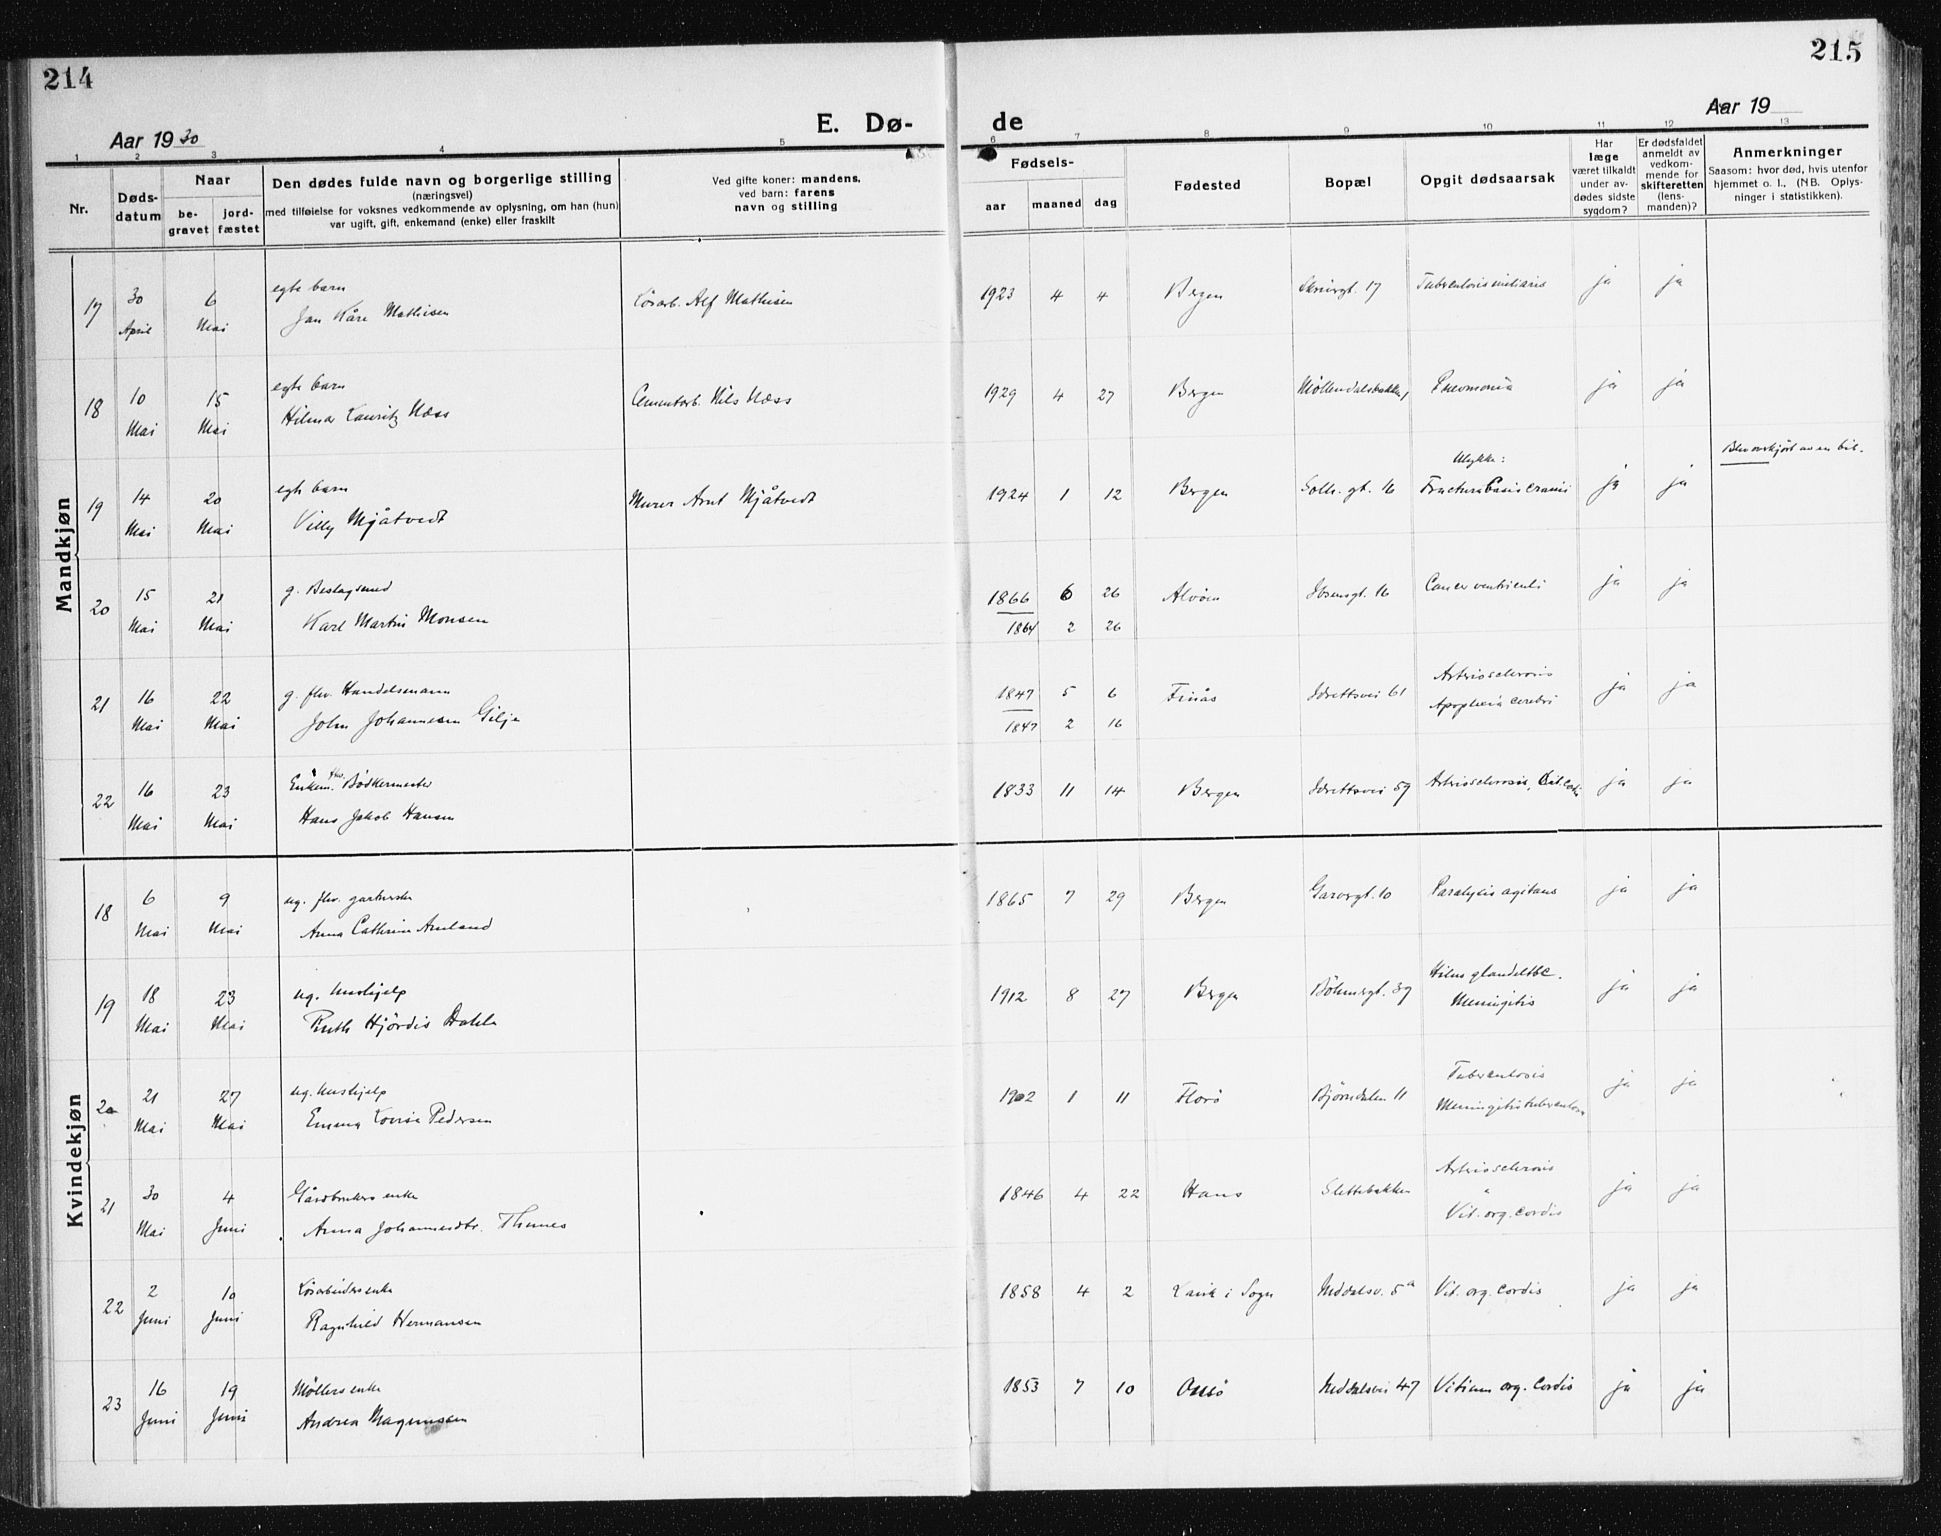 214
215
Aar 1930
E. Dø-
de
Aar 19
1 2 3 4 5 6 7 8 9 10 11 12 13
Nr.
Døds-
datum
Naar
be-
gravet
jord-
fæstet
Den dødes fulde navn og borgerlige stilling
(næringsvei)
med tilføielse for voksnes vedkommende av oplysning, om han (hun)
var ugift, gift, enkemand (enke) eller fraskilt
Ved gifte koner: mandens,
ved barn: farens
navn og stilling
Fødsels-
aar maaned dag
Fødested
Bopæl
Opgit dødsaarsak
Har
læge
været tilkaldt
under av-
dødes sidste
sygdom?
Er dødsfaldet
anmeldt av
vedkom-
mende for
skifteretten
(lens-
manden)?
Anmerkninger
Saasom: hvor død, hvis utenfor
hjemmet o. l., (NB. Oplys-
ninger i statistikken).
Mandkjøn
17 30 6 egte barn Løsarb. Alf Mathisen 1923 4 4 Bergen 17 Tuberculosis miliaris ja ja
April Mai Jan Kåre Mathisen
18 10 15 egte barn Cementarb. Nils Næss 1929 4 27 Bergen Møllendalsbakken 1 Pneumonia ja ja
Mai Mai Hilmar Lauritz Næss
Ulykke: Blev overkjørt av en bil.
19 14 20 egte barn Murer Arnt Mjåtvedt 1924 1 12 Bergen Solh. gt. 16 Fractura basis cranii ja ja
Mai Mai Villy Mjåtvedt
20 15 21 g. Beslagsmed 1866 6 26 Alvøen Ibsensgt. 16 Cancer ventriculi ja ja
Mai Mai Karl Martin Monsen 1864 2 26
21 16 22 g. fhv. Handelsmann 1847 5 6 Finås Idrettsvei 61 Arteriosclerosis ja ja
Mai Mai John Johannesen Gilje 1847 2 16 Apoplexia cerebri
22 16 23 Enkem. fhv. Bødkermester 1833 11 14 Bergen Idrettsvei 59 Arteriosclerosis, ja ja
Mai Mai Hans Jakob Hansen
Kvindekjøn
18 6 9 ug. fhv. 1865 7 29 Bergen 10 Paralysis agitans ja ja
Mai Mai Anna Cathrine Amland
19 18 23 ug. hushjelp 1912 8 27 Bergen Bøhmergt. 39 Hilus glandeltbc. ja ja
Mai Mai Ruth Hjördis Dahle Meningitis
20 21 27 ug. hushjelp 1902 1 11 Florø Bjørndalen 11 Tuberculosis ja ja
Mai Mai Emma Lovise Pedersen Meningitis tuberculosa
21 30 4 Gårdbrukers enke 1846 4 22 Haus Slettebakken Arteriosclerosis ja ja
Mai Juni Anna Johannesdtr. Thunes Vit. org. cordis
22 2 10 Løsarbeiders enke 1858 4 2 Lavik i Sogn Nøddalsv. 5a Vit. org. cordis ja ja
Juni Juni Ragnhild Hermansen
23 16 19 Møllers enke 1853 7 10 Nøddalsvei 47 Vitium org. Cordis ja ja
Juni Juni Andrea Magnussen